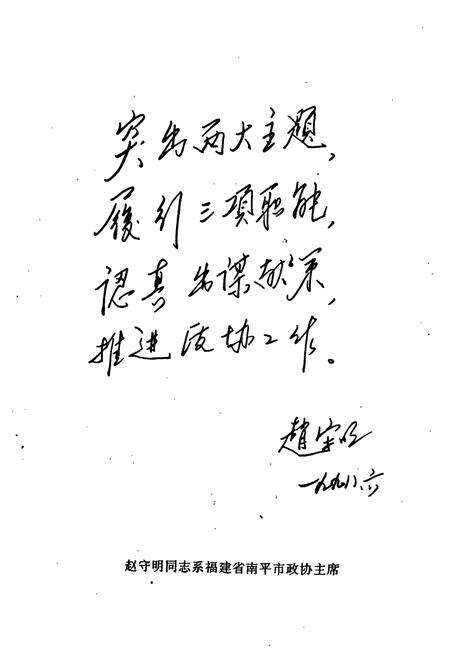 突出两大主題，
履行三項职能，
認真出谋献策，
推进政协工作。
趙守明
一九九八.六
赵守明同志系福建省南平市政协主席